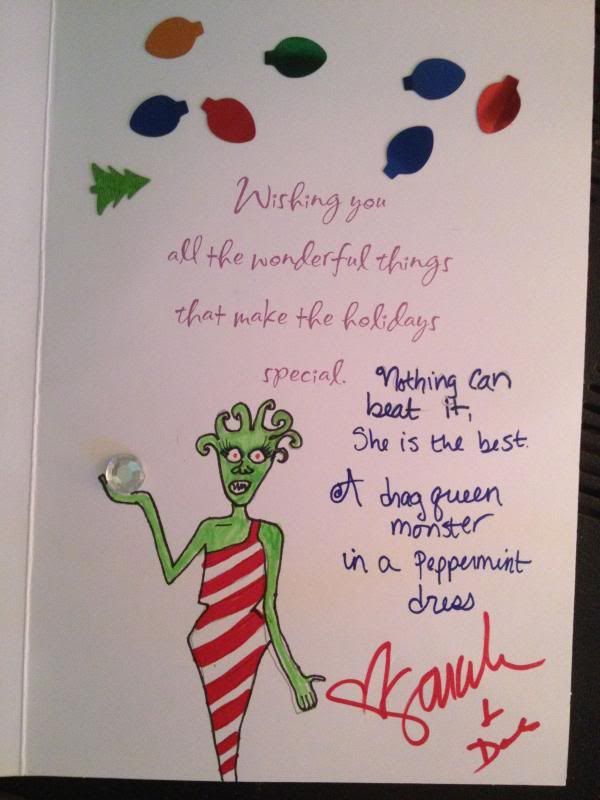 Wishing you
all the wonderful things
that make the holidays
special.
Nothing can
beat it,
She is the best.
A drag queen
monster
in a Peppermint
dress
Sarah
+